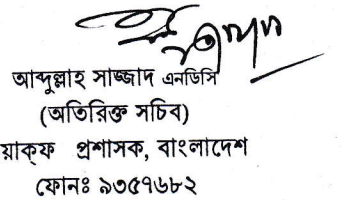 আব্দুল্লাহ সাজ্জাদ এনডিসি
(অতিরিক্ত সচিব)
য়াক্ফ প্রশাসক, বাংলাদেশ
ফোনঃ ৯৩৫৭৬৮২